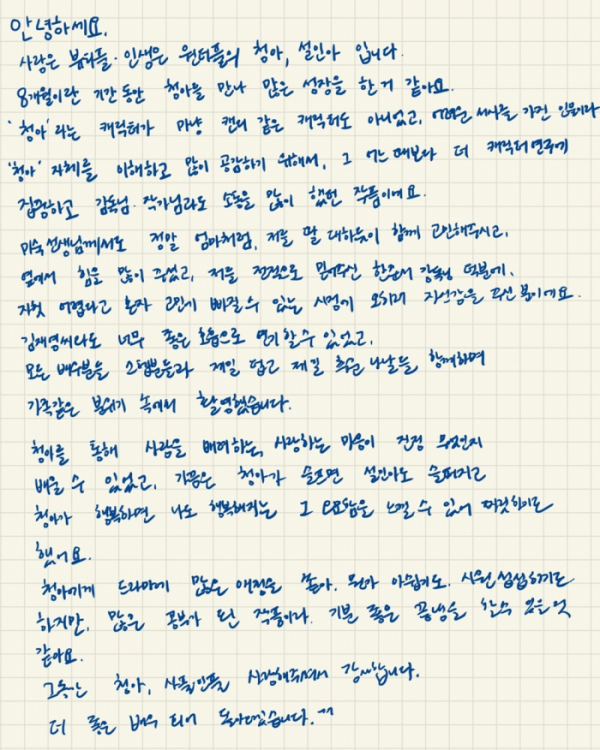 안녕하세요.
사랑은 뷰티풀·인생은 원더풀의 청아, 설인아 입니다.
8개월이란 기간동안 청아를 만나 많은 성장을 한거 같아요.
'청아'라는 캐릭터가 마냥 캔디 같은 캐릭터도 아니었고, 어려운 서사를 가진 인물이라
'청아' 자체를 이해하고 많이 공감하기 위해서, 그 어느때보다 더 캐릭터연구에
집중하고 감독님·작가님과도 소통을 많이 했던 작품이에요.
미숙선생님께서도 정말 엄마처럼, 저를 딸 대하듯이 함께 고민해주시고,
옆에서 힘을 많이 주셨고, 저를 전적으로 믿어주신 한준서 감독님 덕분에,
자칫 어렵다고 혼자 고민에 빠질 수 있는 시점에 오히려 자신감을 주신 분이에요.
김재영씨와도 너무 좋은 호흡으로 연기할 수 있었고,
모든 배우분들 스텝분들과 제일 덥고 제일 추운 나날들 함께하며
가족같은 분위기 속에서 촬영했습니다.
청아를 통해 사람을 배려하는, 사랑하는 마음이 진정 무엇인지
배울 수 있었고, 가끔은 청아가 슬프면 설인아도 슬퍼지고
청아가 행복하면 나도 행복해지는 그 묘함을 느낄 수 있어 짜릿하기도
했어요.
청아에게 드라마에 많은 애정을 쏟아, 뭔가 아쉽기도, 시원섭섭하기도
하지만, 많은 공부가 된 작품이라 기분 좋은 종방을 할수 있을것
같아요.
그동안 청아, 사풀인풀 사랑해주셔서 감사합니다.
더 좋은 배우 되어 돌아오겠습니다.^^